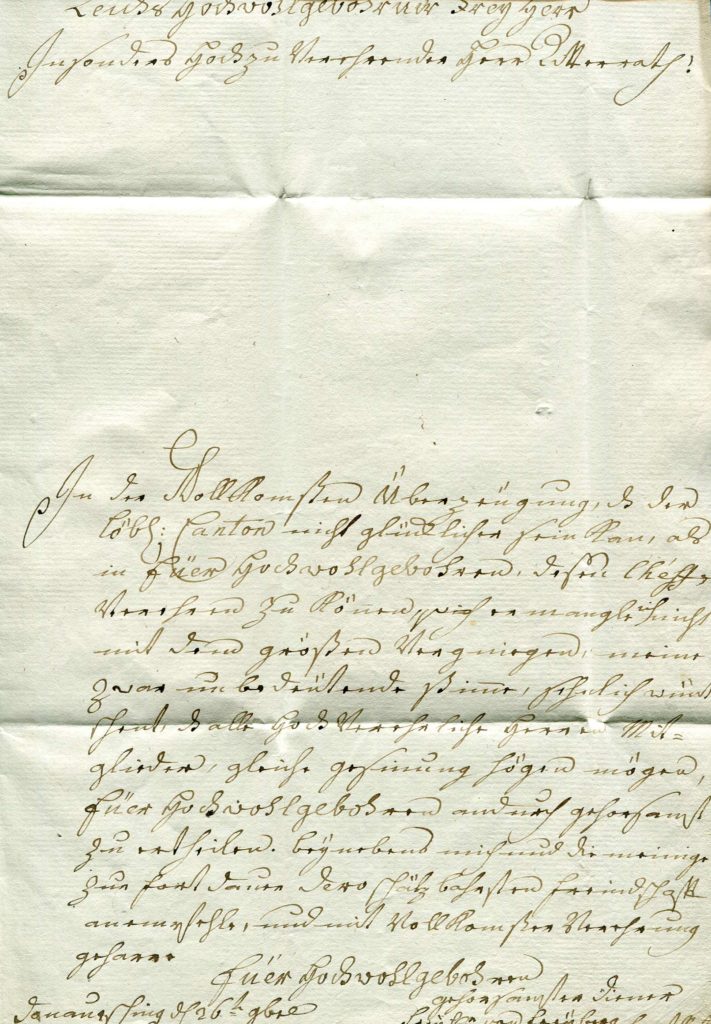 Reichs Hochwohlgebohrner Frey Herr
Insonders Hochzu Verehrender Herr Ritterrath!
In der Vollkomsten Überzeügung, d der
Löbl: Canton nicht glücklicher sein kan, als
in Eüer Hochwohlgebohren, desen Cheff
Verehren zu könen, er mangle ich nicht
mit dem grösten Vergniegen, meine
zwar unbedeütende stimme, sehnlich wünt
schent, d alle Hoch Verehrliche Herren Mit=
glieder, gleiche gesinung högen mögen,
Eüer Hochwohlgebohren andurch gehorsamst
zu ertheilen. beynebens mich und die meinige
zur fort dauer dero schätzbahrsten freindschafft
anempfehle, und mit Vollkomster Verehrung
geharre
Eüer Hochwohlgebohren
gehorsamster diener
Donaueshing d 26t 9bre